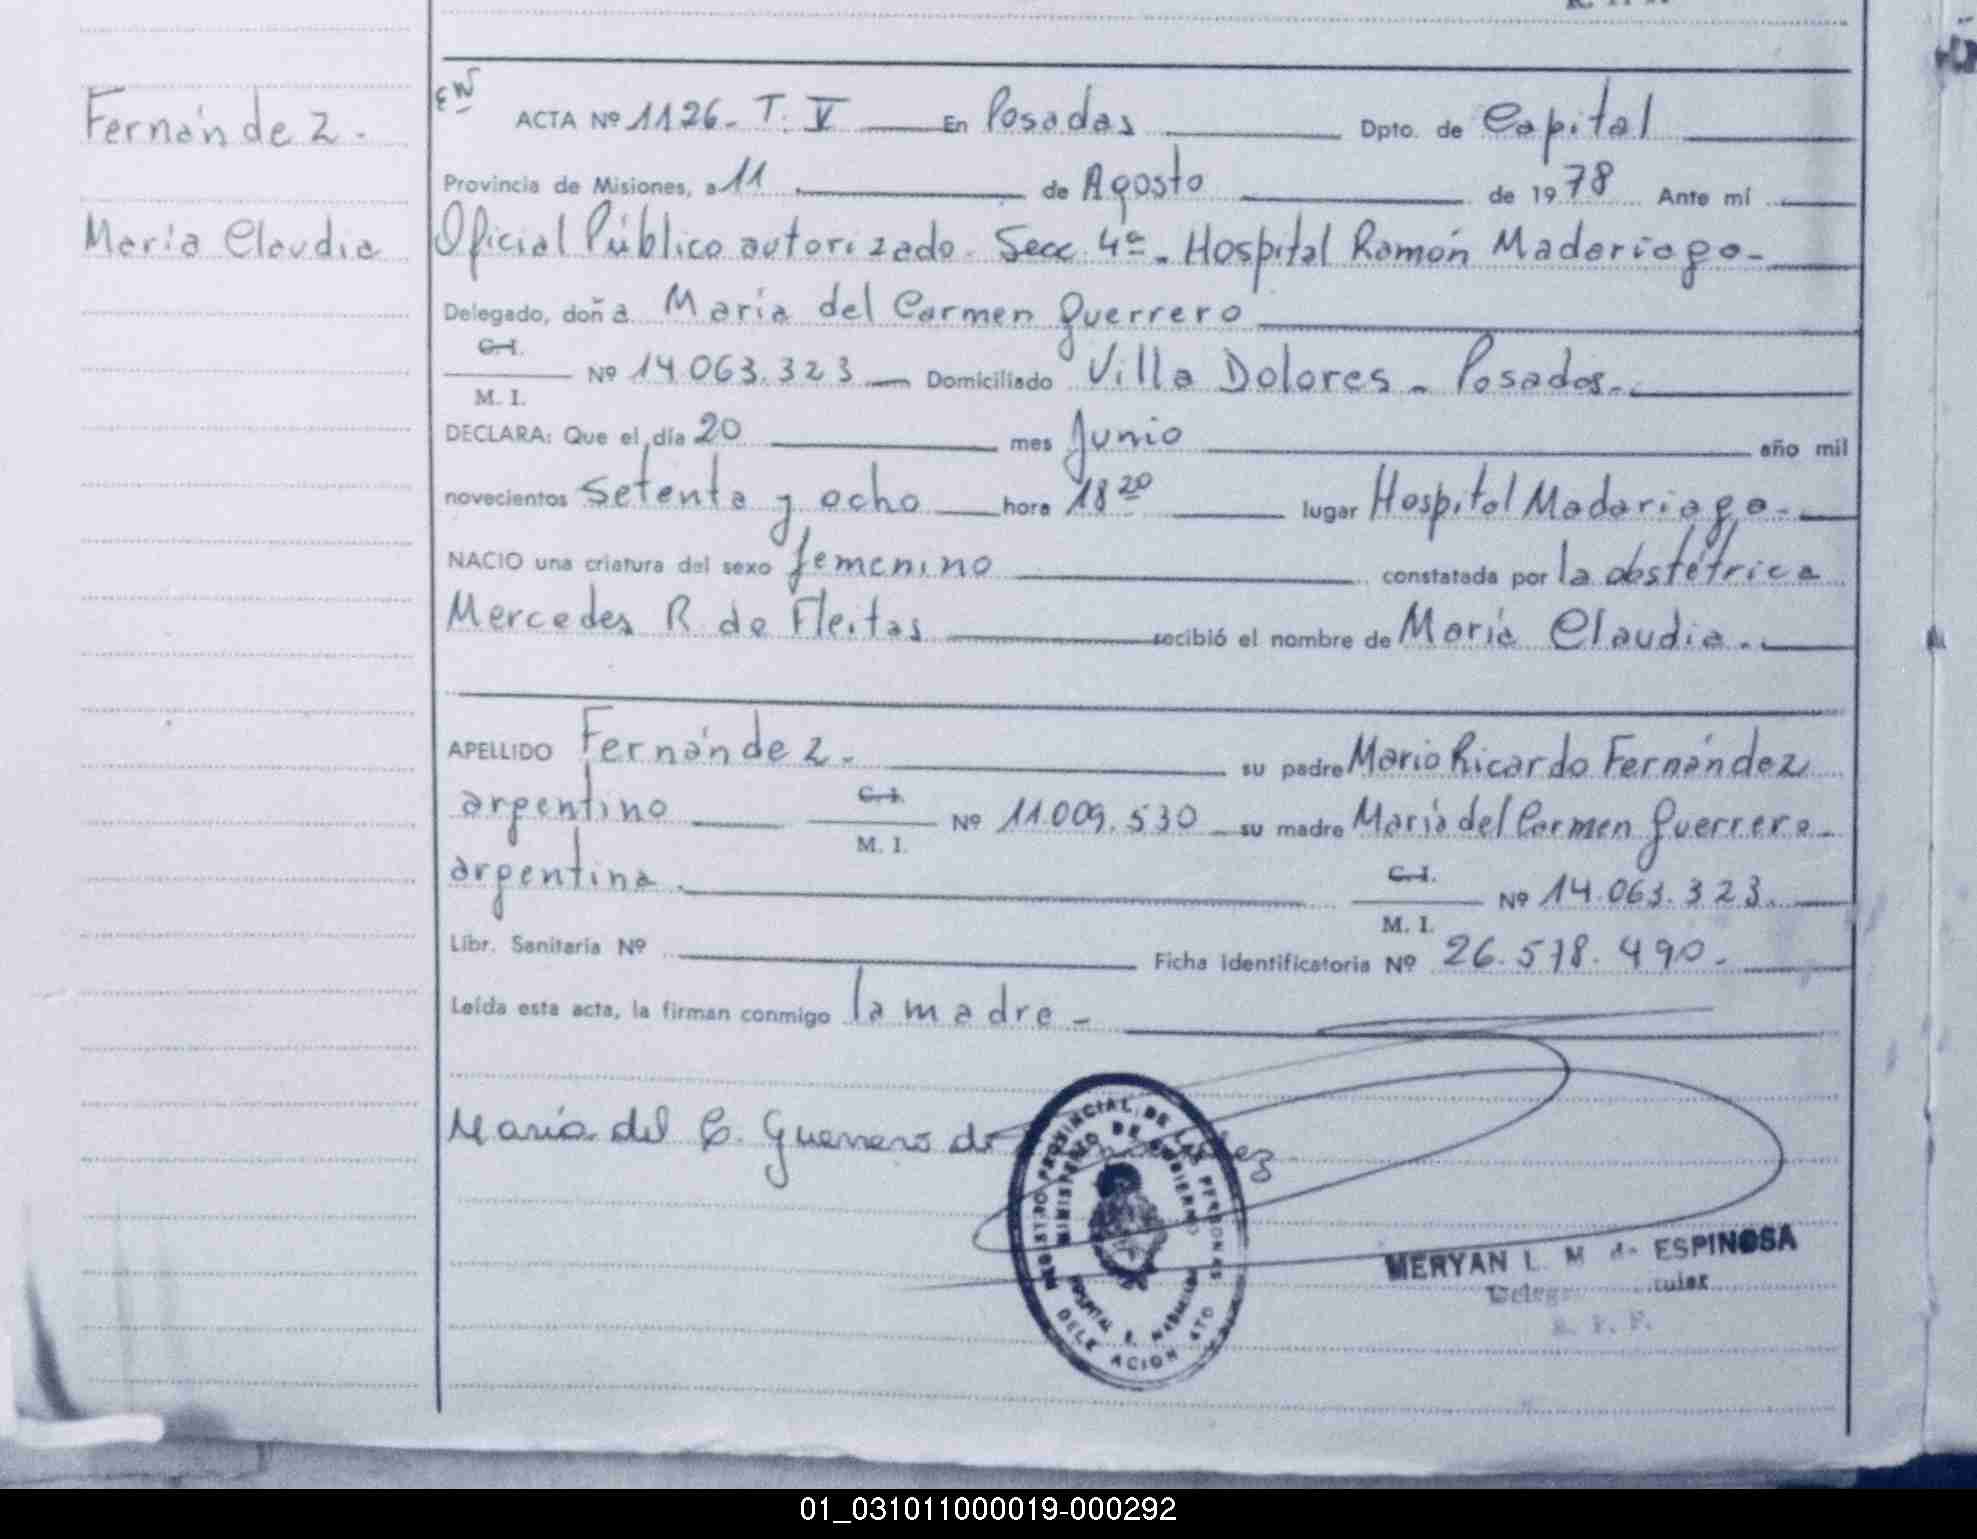 Fernández.
María Claudia
EN
ACTA Nº 1126 - T. V En Posadas Dpto. de Capital
Provincia de Misiones, a 11 de Agosto de 1978 Ante mí
Oficial Público autorizado. Secc. 4ª - Hospital Ramón Madariaga -
Delegado, doña María del Carmen Guerrero
C. I.
M. I. Nº 14.063.323 Domiciliado Villa Dolores - Posadas -
DECLARA: Que el día 20 mes Junio año mil
novecientos setenta y ocho hora 18 20 lugar Hospital Madariaga -
NACIO una criatura del sexo femenino constatada por la obstétrica
Mercedes R. de Fleitas recibió el nombre de María Claudia.
APELLIDO Fernández. su padre Mario Ricardo Fernández
argentino C. I. M. I. Nº 11.009.530 su madre María del Carmen Guerrero -
argentina. C. I. M. I. Nº 14.063.323.
Libr. Sanitaria Nº Ficha Identificatoria Nº 26.578.490.
Leída esta acta, la firman conmigo la madre -
María del C. Guerrero de
REGISTRO PROVINCIAL DE LAS PERSONAS
MINISTERIO DE GOBIERNO
HOSPITAL R. MADARIAGA
DELEGACION 4TO
MERYAN L. M. de ESPINOSA
R. P. P.
01_031011000019-000292